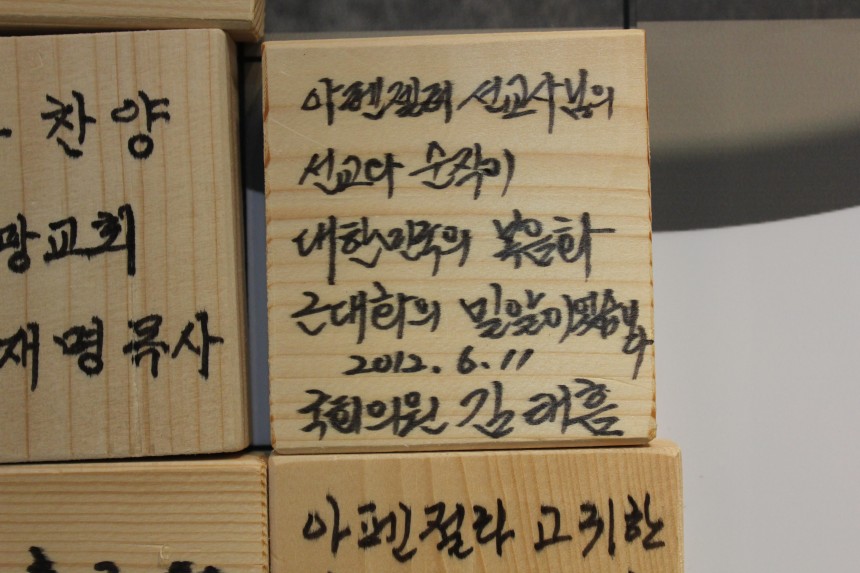 찬양
망교회
재명 목사
아펜젤러 선교사님의
선교와 순직이
대한민국의 복음화
근대화의 밀알이었습니다
2012. 6. 11
국회의원 김태흠
아펜젤라 고귀한